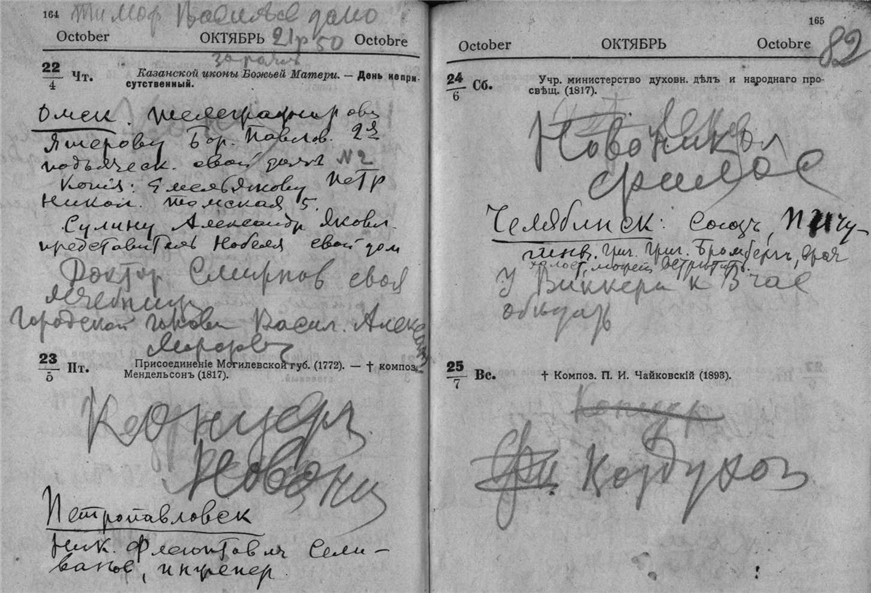 164
Тимоф Васильев дано
October ОКТЯБРЬ 21р 50 Octobre
22/4 Чт. Казанской иконы Божьей Матери. — День непри-
сутственный.
Омск. Телеграфиров
Яшерову Бор. Павлов. 2я
подъяческ. свой домъ №2
Копия: Емельякову Петр
Никол. Томская 5.
Сулину Александр Яковл.
представитель Нобеля свой дом
Доктор Смирнов своя
лечебница
городской голова Васил. Александ
23/5 Пт. Присоединеніе Могилевской губ. (1772). — † композ.
Мендельсонъ (1817).
Концерт
Новони
Петропавловск
Ник. Феоктович Сели-
ванов, инженер
165
October ОКТЯБРЬ Octobre 82
24/6 Сб. Учр. министерство духовн. дѣлъ и народнаго про-
свѣщ. (1817).
Новоникол
Челябинск: Союзъ, Пичу-
гинъ. Григ. Григ. Бромбергъ, врач
У Виккера к 3 час
обедать
25/7 Вс. † Композ. П. И. Чайковскій (1893).
Концерт